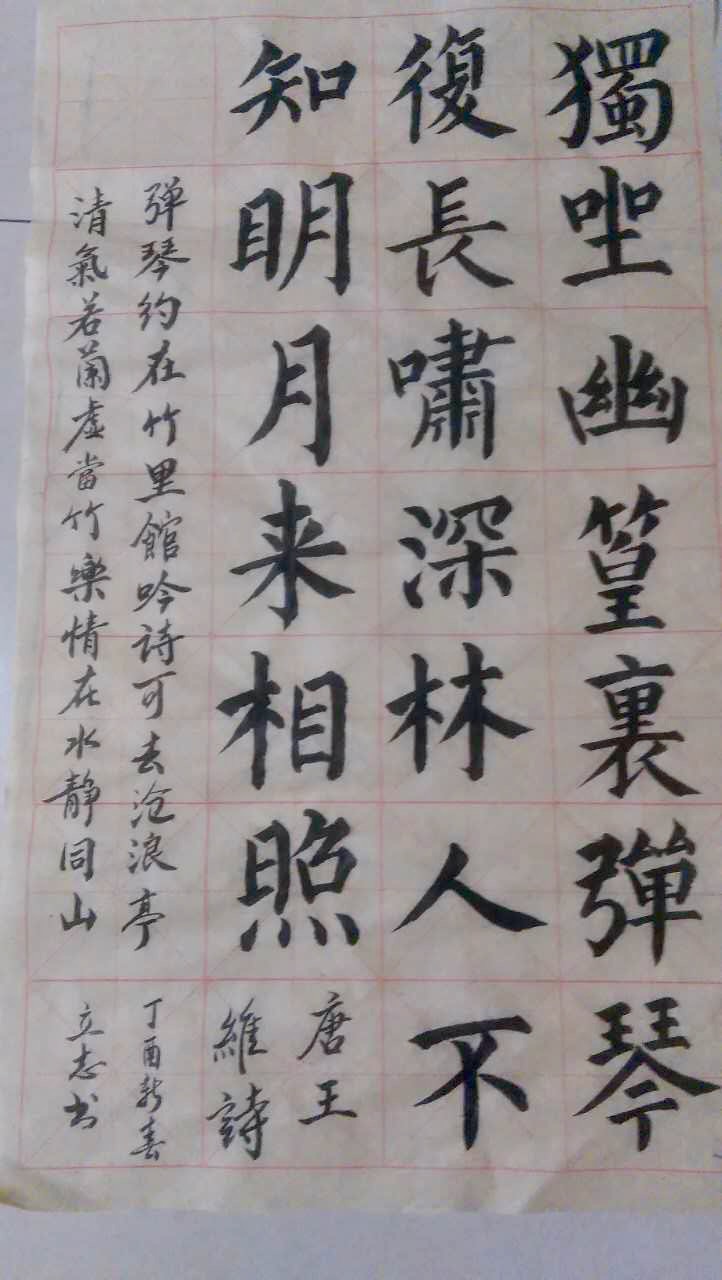 獨坐幽篁裏彈琴
復長嘯深林人不
知明月来相照
唐王
維詩
弹琴约在竹里館吟詩可去沧浪亭
清氣若蘭虚當竹樂情在水静同山
丁酉新春
立志书